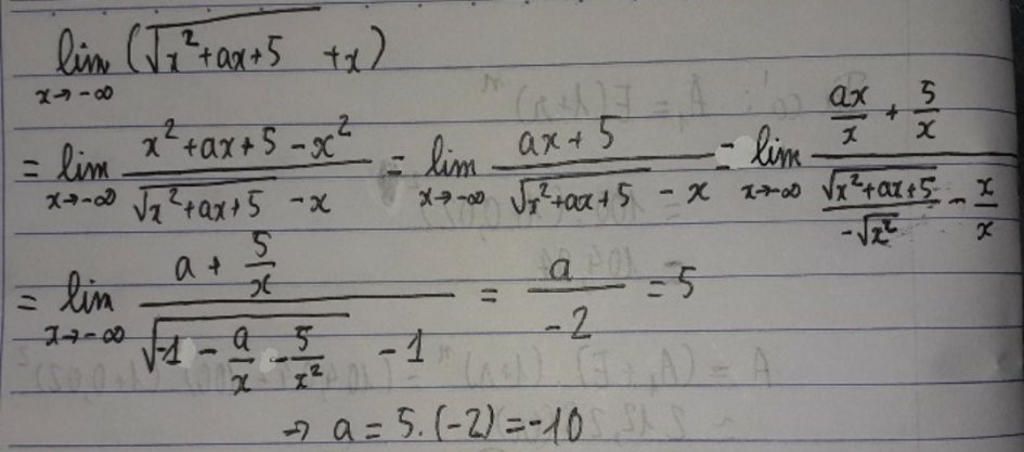 lim x→-∞ (√(x²+ax+5) +x)
= lim x→-∞ (x²+ax+5-x²)/(√(x²+ax+5) -x) = lim x→-∞ (ax+5)/(√(x²+ax+5) -x) = lim x→-∞ (ax/x + 5/x)/(√(x²+ax+5)/(-√x²) - x/x)
= lim x→-∞ (a + 5/x)/(√(-1 - a/x - 5/x²) -1) = a/-2 = 5
→ a = 5.(-2) = -10